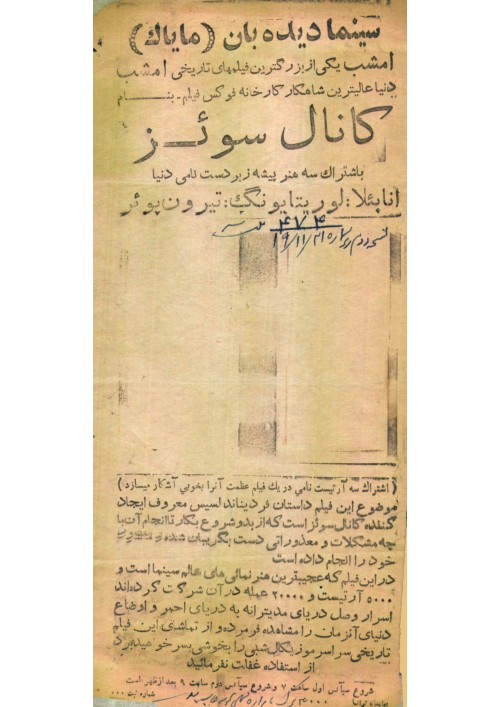 سینما دیده بان (مایاك)
امشب یکی از بزرگترین فیلمهای تاریخی امشب
دنیا عالیترین شاهکار کارخانه فوکس فیلم - بنــام
کانال سوئـــز
باشتراك سه هنرپیشه زبردست نامی دنیا
انابئلا: لوریتا یونگ: تیرون پوئر
۴۷۴
۱۹/۱۱/۲۱
(اشتراك سه آرتیست نامی در یك فیلم عظمت آنرا بخوبی آشکار میسازد)
موضوع این فیلم داستان فردیناند لسپس معروف ایجاد
کننده کانال سوئز است که از بدو شروع بکار تا انجام آن با
چه مشکلات و معذوراتی دست بگریبان شده و
خود را انجام داده است
در این فیلم که عجیبترین هنرنمائی های عالم سینما است و
۵۰۰۰ آرتیست و ۲۰۰۰۰ عمله در آن شرکت کرده اند
اسرار وصل دریای مدیترانه به دریای احمر و اوضاع
دنیای آنزمان را مشاهده فرمرده و از تماشای این فیلم
تاریخی سراسر موزیکال شبی را بخوشی بسر خواهید برد
از استفاده غفلت نفرمائید
شروع سیآنس اول ساعت ۷ و شروع سیآنس دوم ساعت ۹ بعد از ظهر است
شماره ثبت ۰۰۰